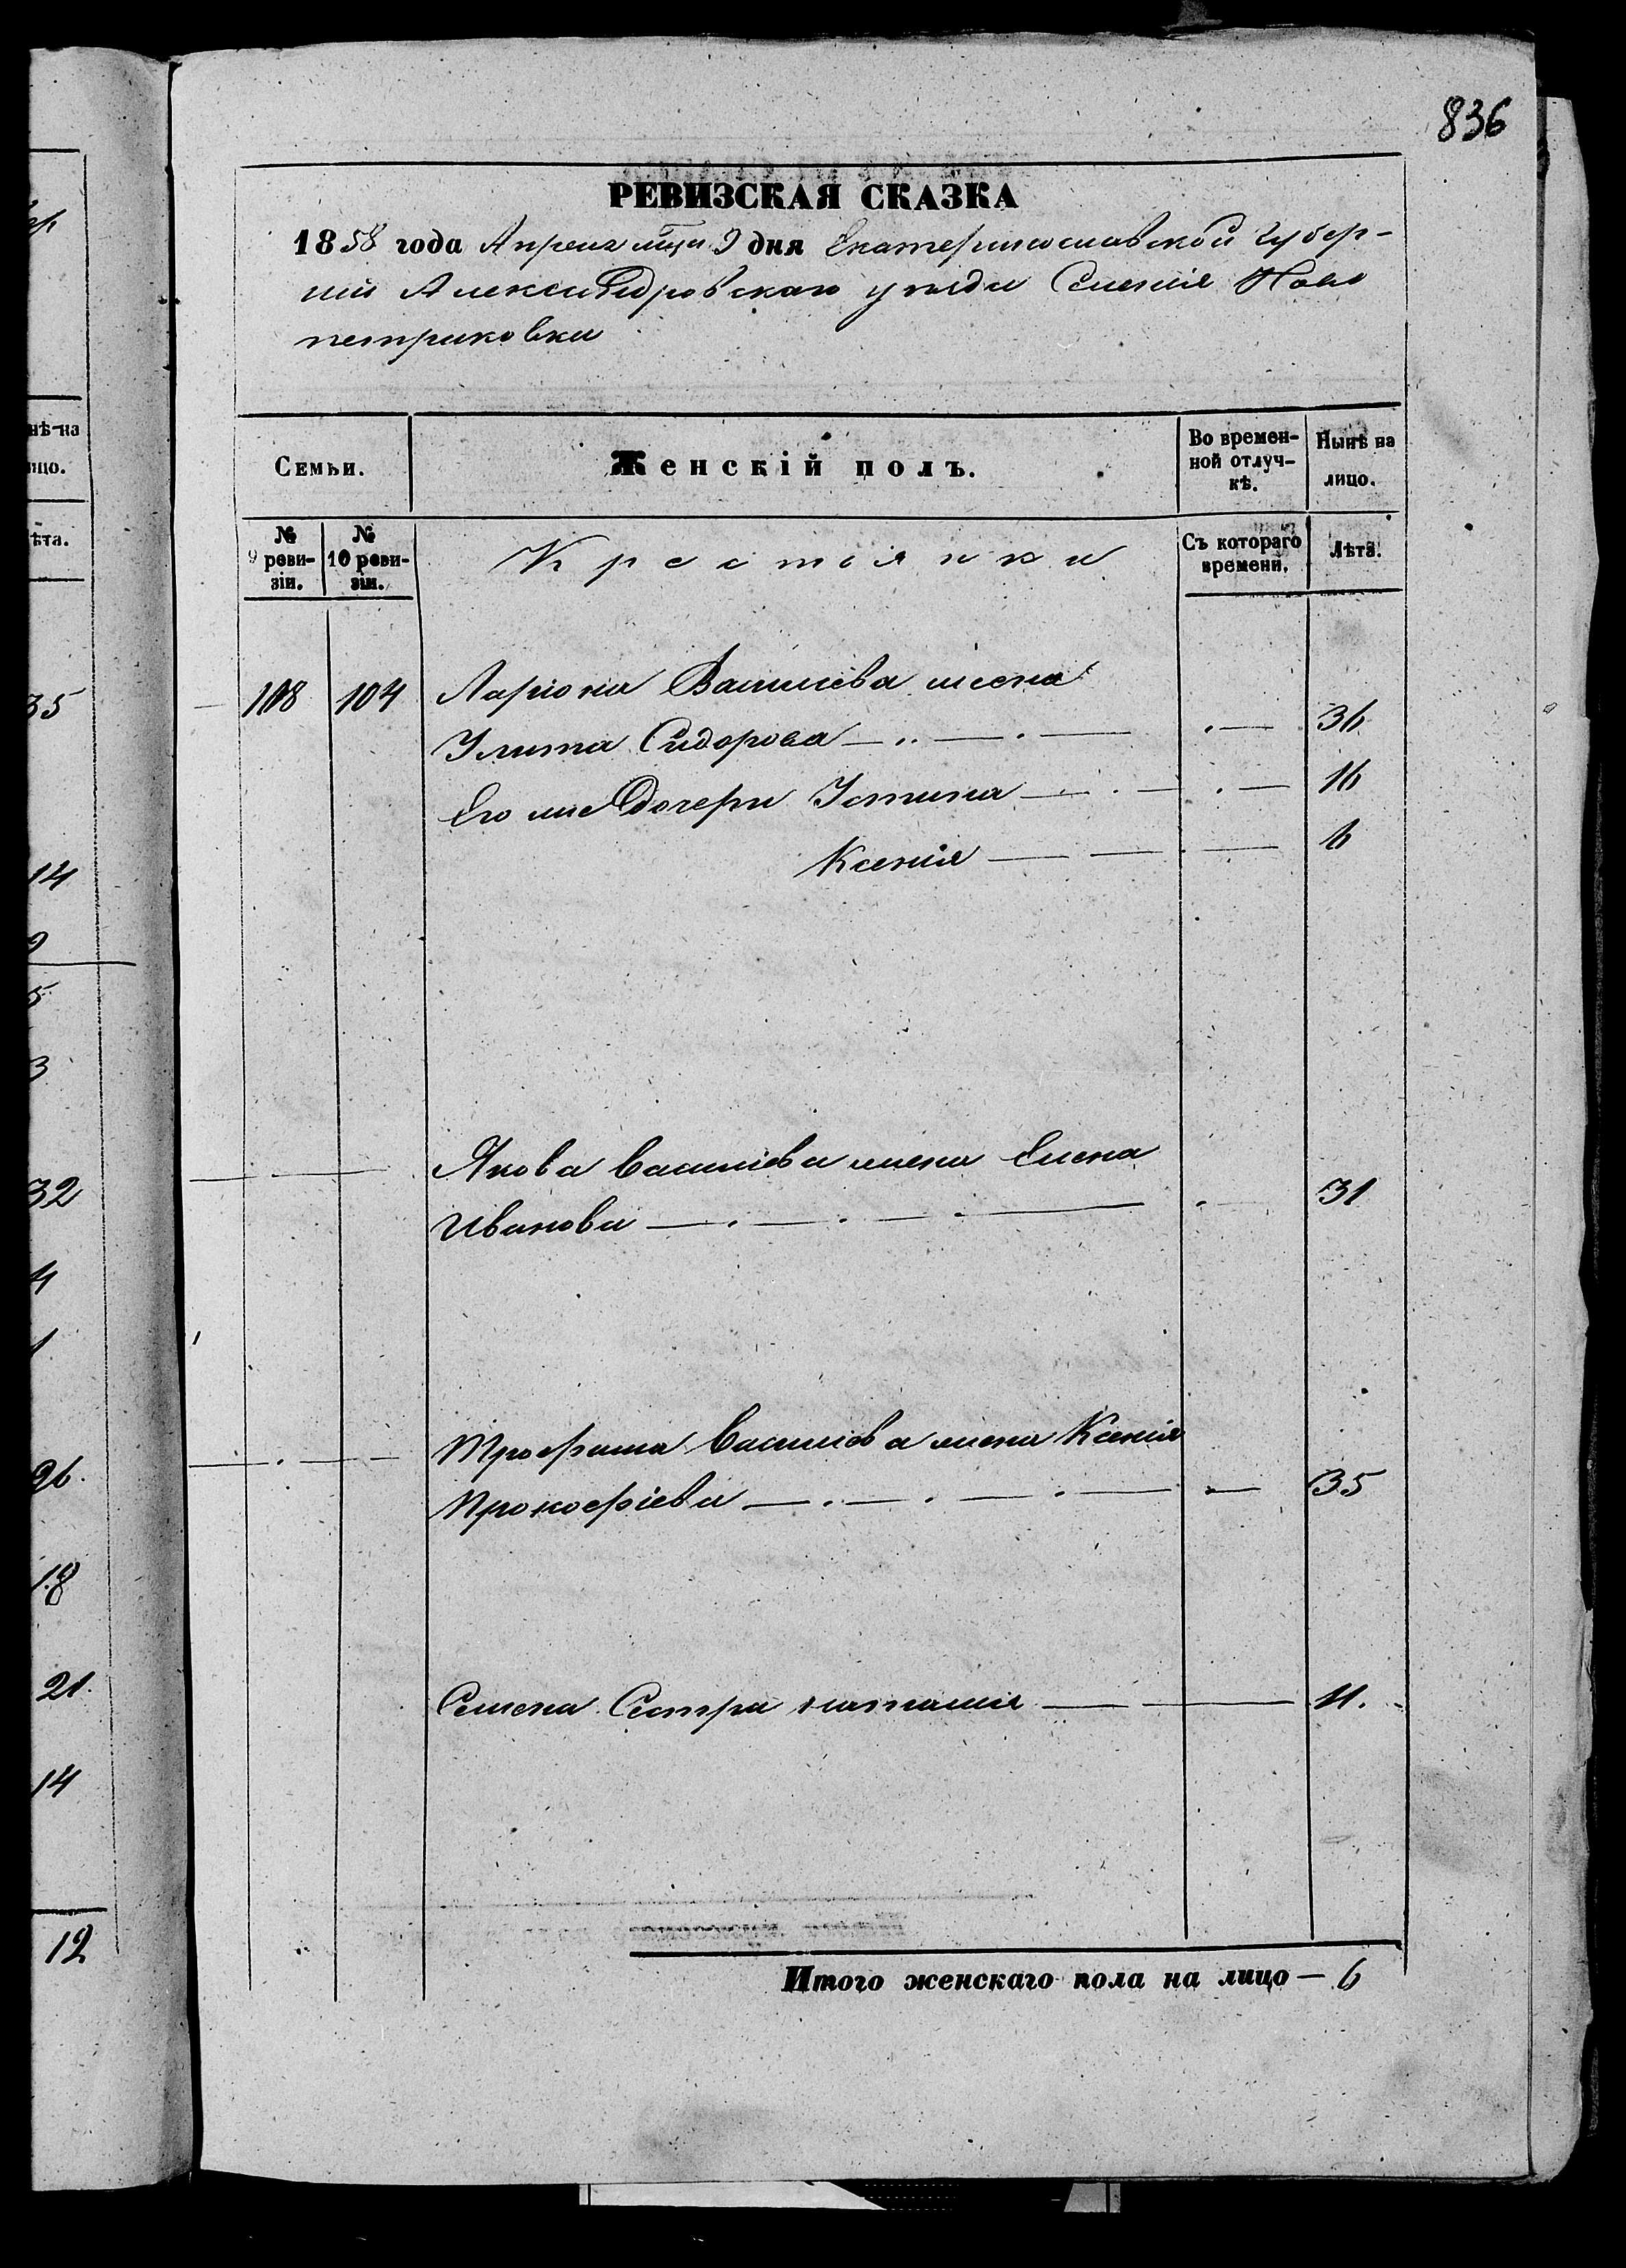 836
РЕВИЗСКАЯ СКАЗКА
1858 года Апреля мца 9 дня Екатеринославской Губер-
нии Александровскаго уезда Селенія Ново
петриковки
Семьи.
Женскій полъ.
Во времен-
ной отлуч-
кѣ.
Нынѣ на
лицо.
№
9 реви-
зіи.
№
10 реви-
зіи.
Крестьянки
Съ котораго
времени.
Лѣта.
108 104 Ларіона Василіева жена
Улита Сидорова 36
Его же Дочери Устина 16
Ксенія 6
Якова Василіева жена Елена
Иванова 31
Трофима Василіева жена Ксенія
Прокофіева 35
Семена Сестра Наталія 11.
Итого женскаго пола на лицо — 6
нѣ на
ицо.
ѣта.
35
14
9
5
3
32
4
1
26
18
21
14
12